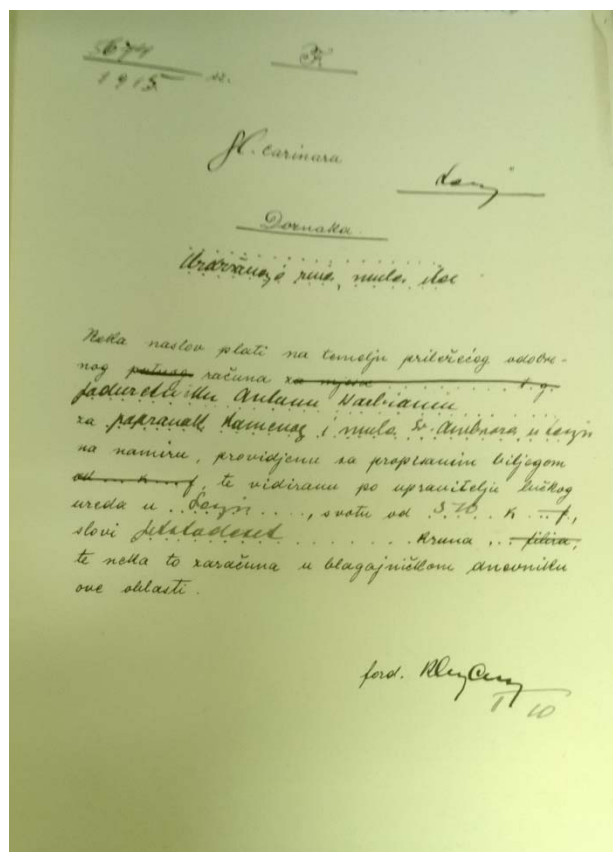 5674
1915
H. carinara
Doznaka
Uzdržavanje rive, mula itd.
Neka naslov plati na temelju priležećeg odobre-
nog putnog računa za mjesec . . . . t. g.
poduzetniku Antunu
za popravak kamenog i mula Sv. Ambroza u
na namiru, providjenu sa propisanim biljegom
od . . K . . f, te vidiranu po upravitelju lučkog
ureda u . . . . . , svotu od 510 K . . f,
slovi petstodeset . . . . . . kruna . . filira,
te neka to zaračuna u blagajničkom dnevniku
ove oblasti.
ford.
10